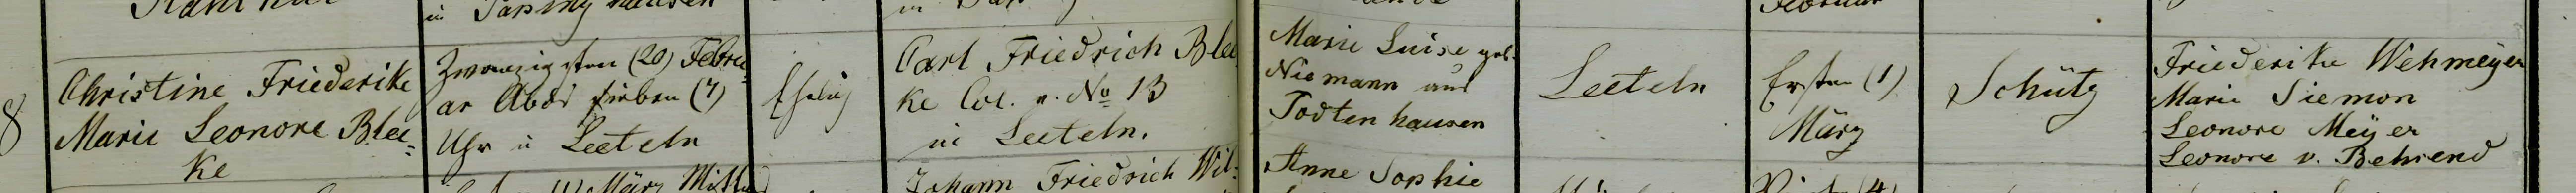 in
8
Christine Friederike
Marie Leonore Blee-
ke
Zwanzigsten (20) Febru-
ar Abds sieben (7)
Uhr in Leeteln
Ehelich
Carl Friedrich Blee-
ke Col. v. No 13
in Leeteln.
Marie Luise geb.
Niemann aus
Todtenhausen
Leeteln
Ersten (1)
März
Schütz
Friederike Wehmeyer
Marie Siemon
Leonore Meyer
Leonore v. Behrend
Februar
März
Johann Friedrich Wil-
Anne Sophie
(4)